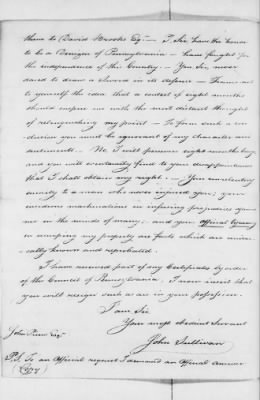 them to David Brooks Esqr — I, Sir, have the honor
to be a Denizen of Pennsylvania — have fought for
the independence of the Country. — You Sir, never
dared to draw a Sword in its defence — Frame not
to yourself the idea that a contest of eight months
should inspire me with the most distant thought
of relinquishing my point — To form such a con-
clusion you must be ignorant of my character and
sentiments. — No, I will persevere eight months longer
and you will eventually find to your disappointment
that I shall obtain my right. — Your unrelenting
enmity to a man who never injured you; your
machinations in injuring
me in the minds of many; and your official tyranny
in usurping my property are facts which are univer-
sally known and reprobated.
I have received part of my Certificates by order
of the Council of Pennsylvania, I now insist that
you will resign such as are in your possession.
I am Sir
Your most obedient Servant
John Sullivan
John Pierce Esqr.
P.S. To an Official request I demand an Official answer
(Copy)